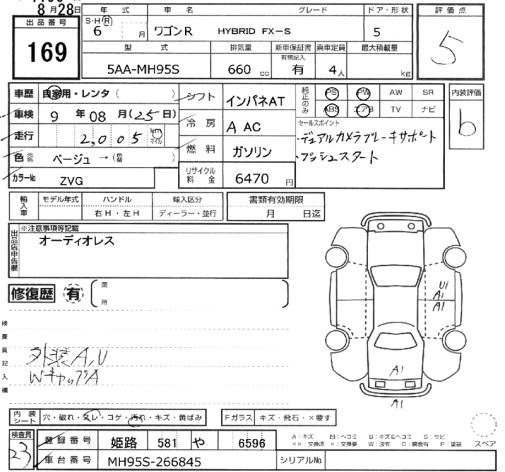 8月28日
出品番号
169
年式
車名
グレード
ドア・形状
S・H・R
6 月
ワゴンR
HYBRID FX-S
5
型式
排気量
新車保証書
有償記入
乗車定員
最大積載量
5AA-MH95S
660 cc
有
4人
kg
評価点
5
車歴
自家用・レンタ( )
車検
9 年 08 月 (25日)
走行
2,005
km
マイル
色
ベージュ→( )
カラーNo
ZVG
シフト
インパネAT
冷房
A AC
燃料
ガソリン
リサイクル料金
6470円
純正のみ
PS
PW
AW
SR
ABS
エアB
TV
ナビ
セールスポイント
・デュアルカメラブレーキサポート
・プッシュスタート
内装評価
b
輸入車
モデル年式
ハンドル
輸入区分
右H・左H
ディーラー・並行
書類有効期限
月 日迄
出品店申告欄
※注意事項等記載
オーディオレス
修復歴
有
箇所
検査員記入欄
外装A,U
WキャップA
U1
A1
A1
A1
A1
内装シート
穴・破れ・スレ・コゲ・汚れ・キズ・黄ばみ
Fガラス
キズ・飛石・X要す
検査員
23
登録番号
姫路 581 や 6596
車台番号
MH95S-266845
シリアルNo
スペア